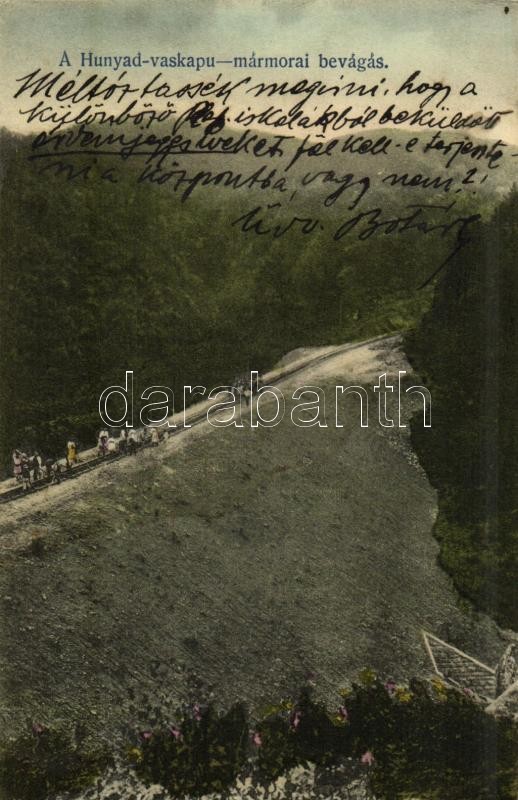 A Hunyad-vaskapu—mármorai bevágás.
Méltóztassék megirni, hogy a
különböző iskolákból beküldött
érdemjegyeket fel kell-e terjeszte-
ni a központba, vagy nem?
Üdv. Botár
darabanth